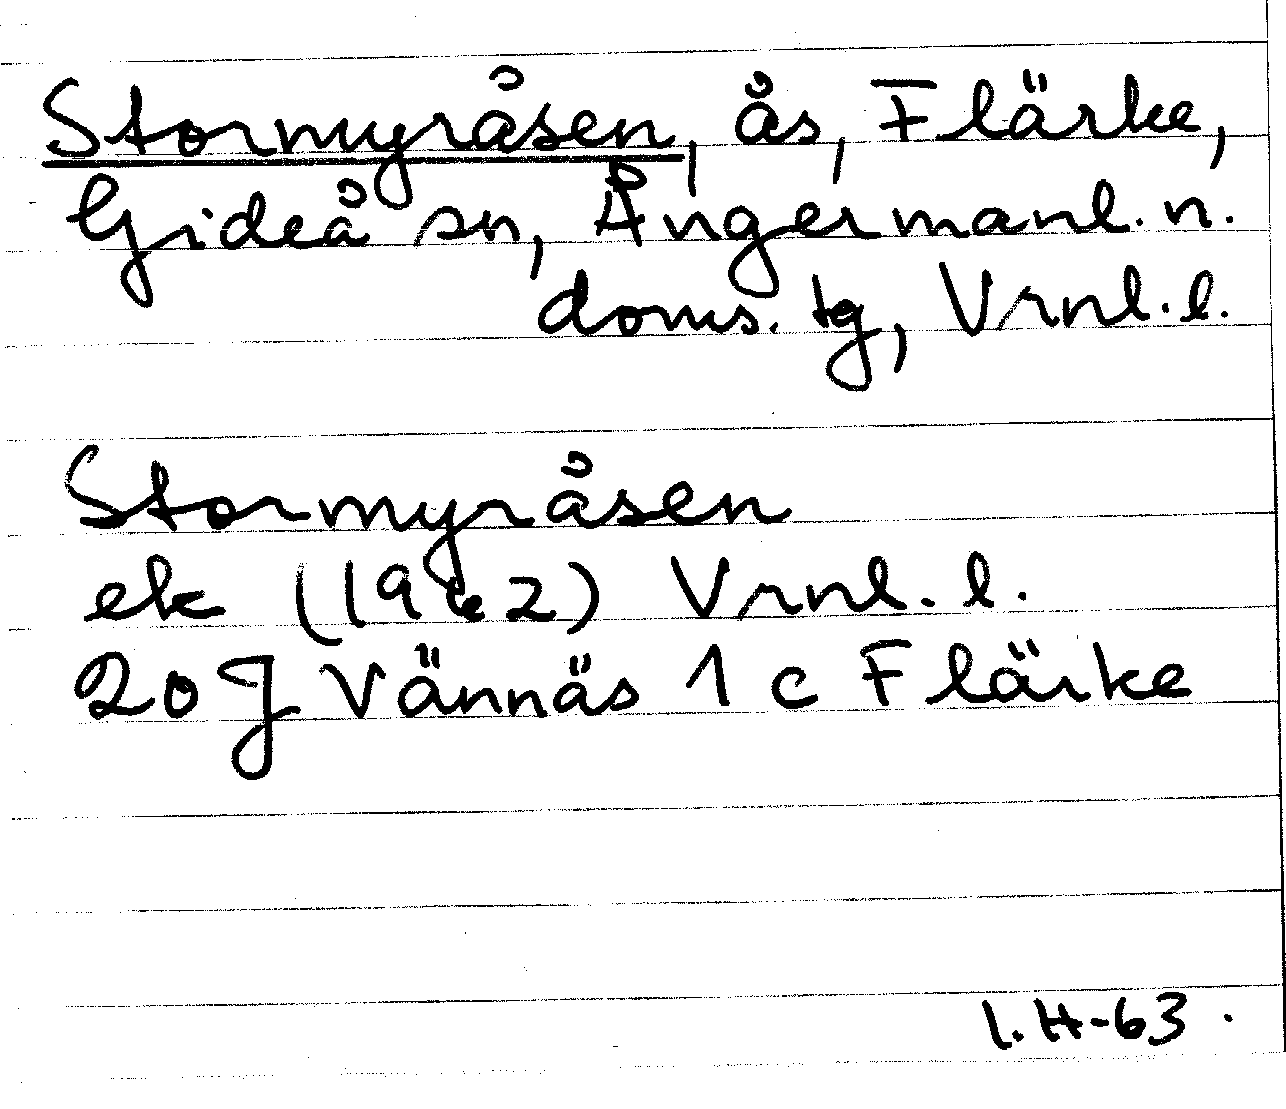 Stormyråsen, ås, Flärke,
Gideå sn, Ångermanl. n.
doms. tg, Vrnl. l.
Stormyråsen
ek (1962) Vrnl. l.
20 J Vännäs 1 c Flärke
I. H-63.